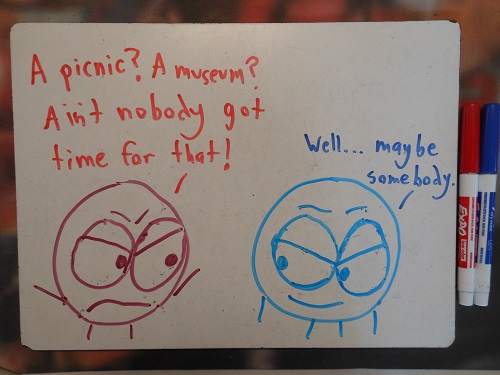 A picnic? A museum?
Ain't nobody got
time for that!
Well... maybe
somebody.
EXPO